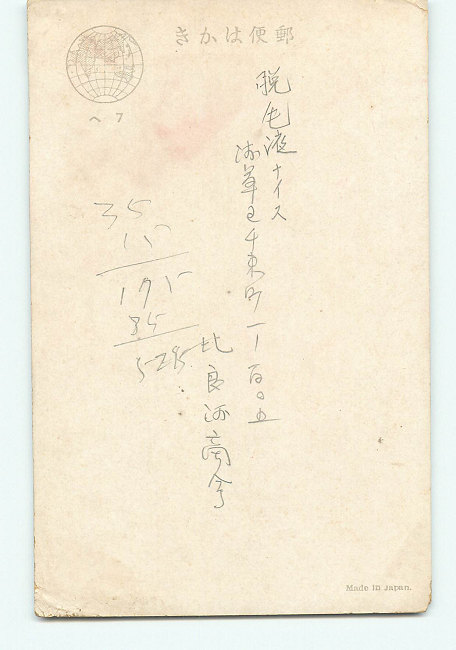 郵便はかき
脱毛液ナイス
浅草区千束町一ノ百〇五
比良 商会
35
15
175
35
525
Made in Japan.